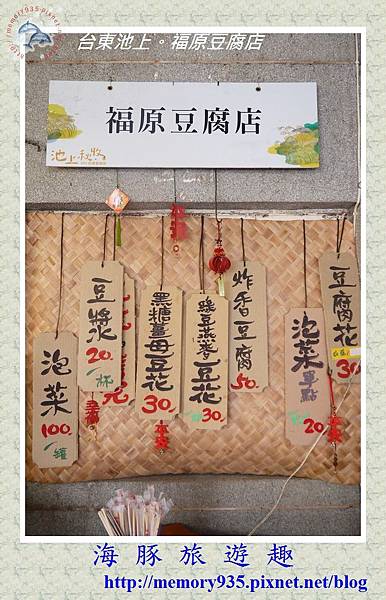 台東池上。福原豆腐店
福原豆腐店
池上秋悠
泡菜
100.
罐
豆漿
20.
杯
元
黑糖薑母豆花
30.
綠豆燕麥豆花
30.
炸香豆腐
50.
泡菜單點
20.
豆腐花
30
海豚旅遊趣
http://memory935.pixnet.net/blog